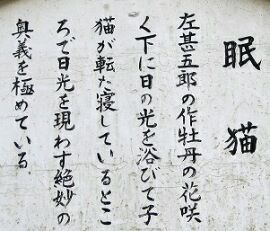 眠猫
左甚五郎の作牡丹の花咲
く下に日の光を浴びて子
猫が転た寝しているとこ
ろで日光を現わす絶妙の
奥義を極めている